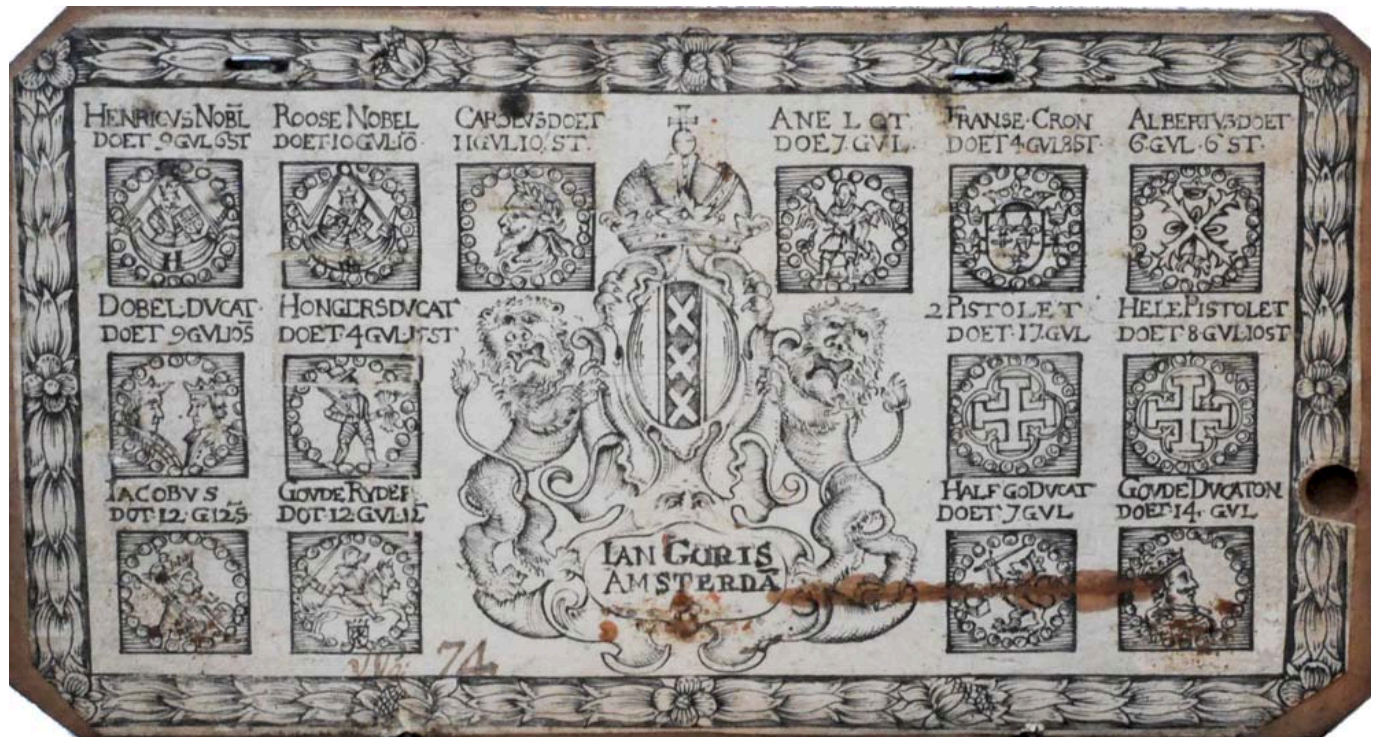 HENRICVS NOBL̄
DOET 9 GVL 6 ST
ROOSE NOBEL
DOET·10 GVL 10̄·
CAROLVS DOET
11 GVL 10, ST.
ANELOT
DOE 7·GVL·
FRANSE·CRON
DOET 4 GVL 8 ST·
ALBERTVS DOET
6·GVL·6 ST·
DOBEL·DVCAT·
DOET 9 GVL 10S̄
HONGERS DVCAT
DOET·4 GVL· ST
2 PISTOLET
DOET·17·GVL
HELE PISTOLET
DOET·8·GVL·10 ST
IACOBVS
DOT·12·G 12·S
GOVDE RYDER
DOT·12·GVL 12
HALF GO DVCAT
DOET 7 GVL
GOVDE DVCATON
DOET·14· GVL
IAN GORIS
AMSTERDĀ
74